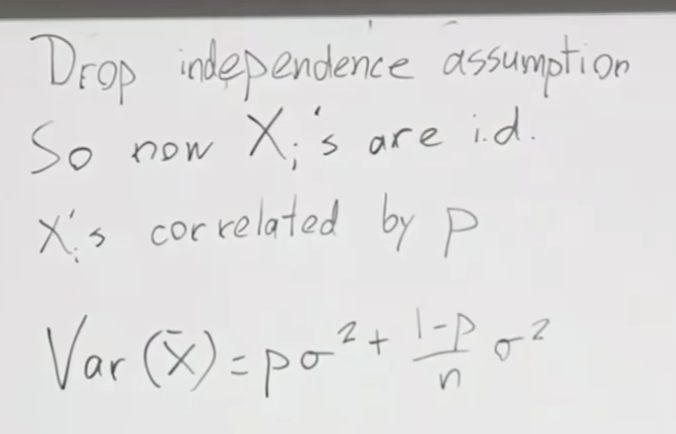 Drop independence assumption
So now Xᵢ's are i.d.
Xᵢ's correlated by ρ
Var(X̄) = ρσ² + (1-ρ)/n σ²